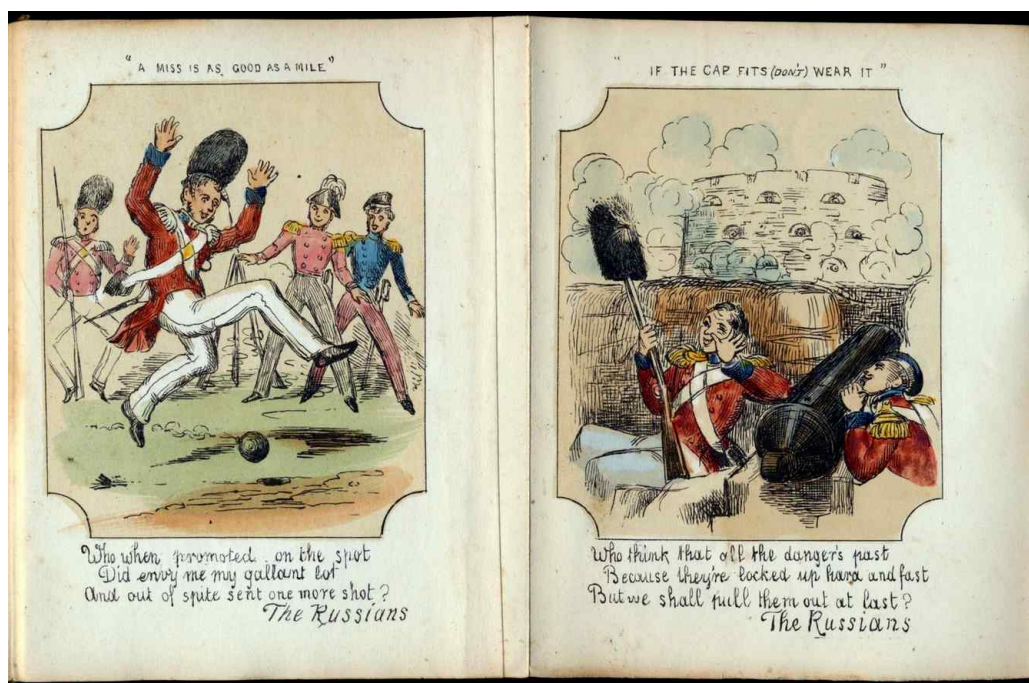 "A MISS IS AS GOOD AS A MILE"
Who when promoted on the spot
Did envy me my gallant lot
And out of spite sent one more shot?
The Russians
"IF THE CAP FITS (DON'T) WEAR IT"
Who think that all the danger's past
Because they're locked up hard and fast
But we shall pull them out at last?
The Russians